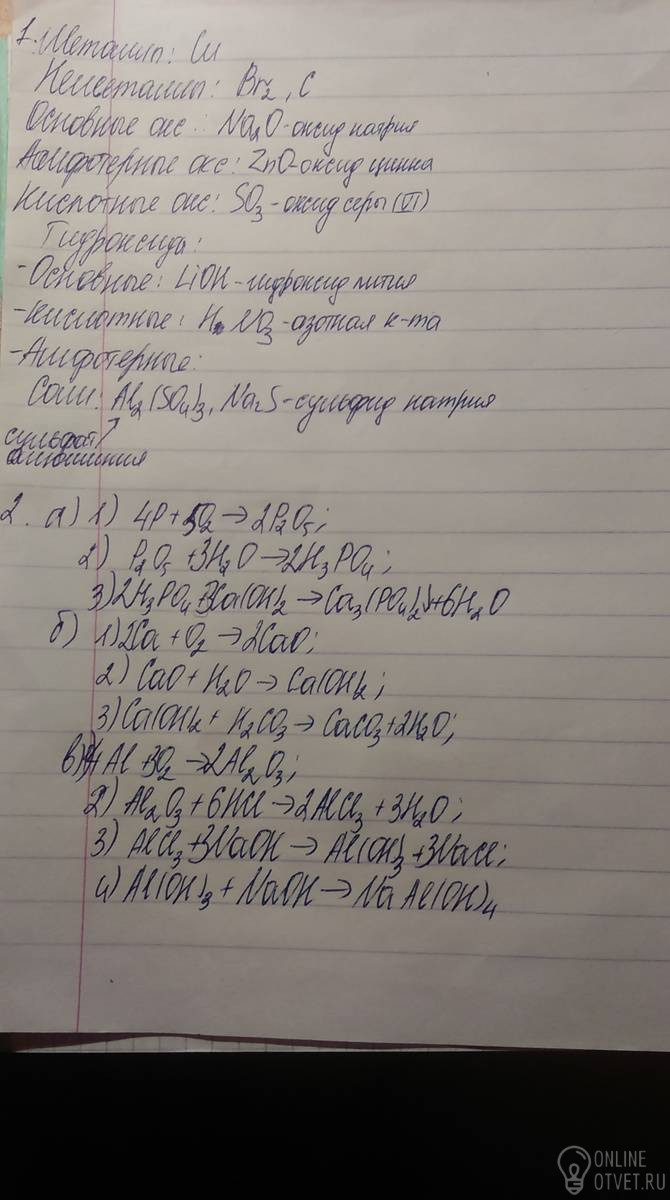 1. Металлы: Cu
Неметаллы: Br2, C
Основные окс.: Na2O-оксид натрия
Амфотерные окс: ZnO-оксид цинка
Кислотные окс: SO3-оксид серы (VI)
Гидроксиды:
-Основные: LiOH-гидроксид лития
-кислотные: HNO3-азотная к-та
-Амфотерные:
Соли: Al2(SO4)3, Na2S-сульфид натрия
сульфат алюминия
2. а) 1) 4P+5O2→2P2O5;
2) P2O5+3H2O→2H3PO4;
3) 2H3PO4+3Ca(OH)2→Ca3(PO4)2↓+6H2O
б) 1) 2Ca+O2→2CaO;
2) CaO+H2O→Ca(OH)2;
3) Ca(OH)2+H2CO3→CaCO3+2H2O;
в) 4Al+3O2→2Al2O3;
2) Al2O3+6HCl→2AlCl3+3H2O;
3) AlCl3+3NaOH→Al(OH)3+3NaCl;
4) Al(OH)3+NaOH→NaAl(OH)4
ONLINE
OTVET.RU